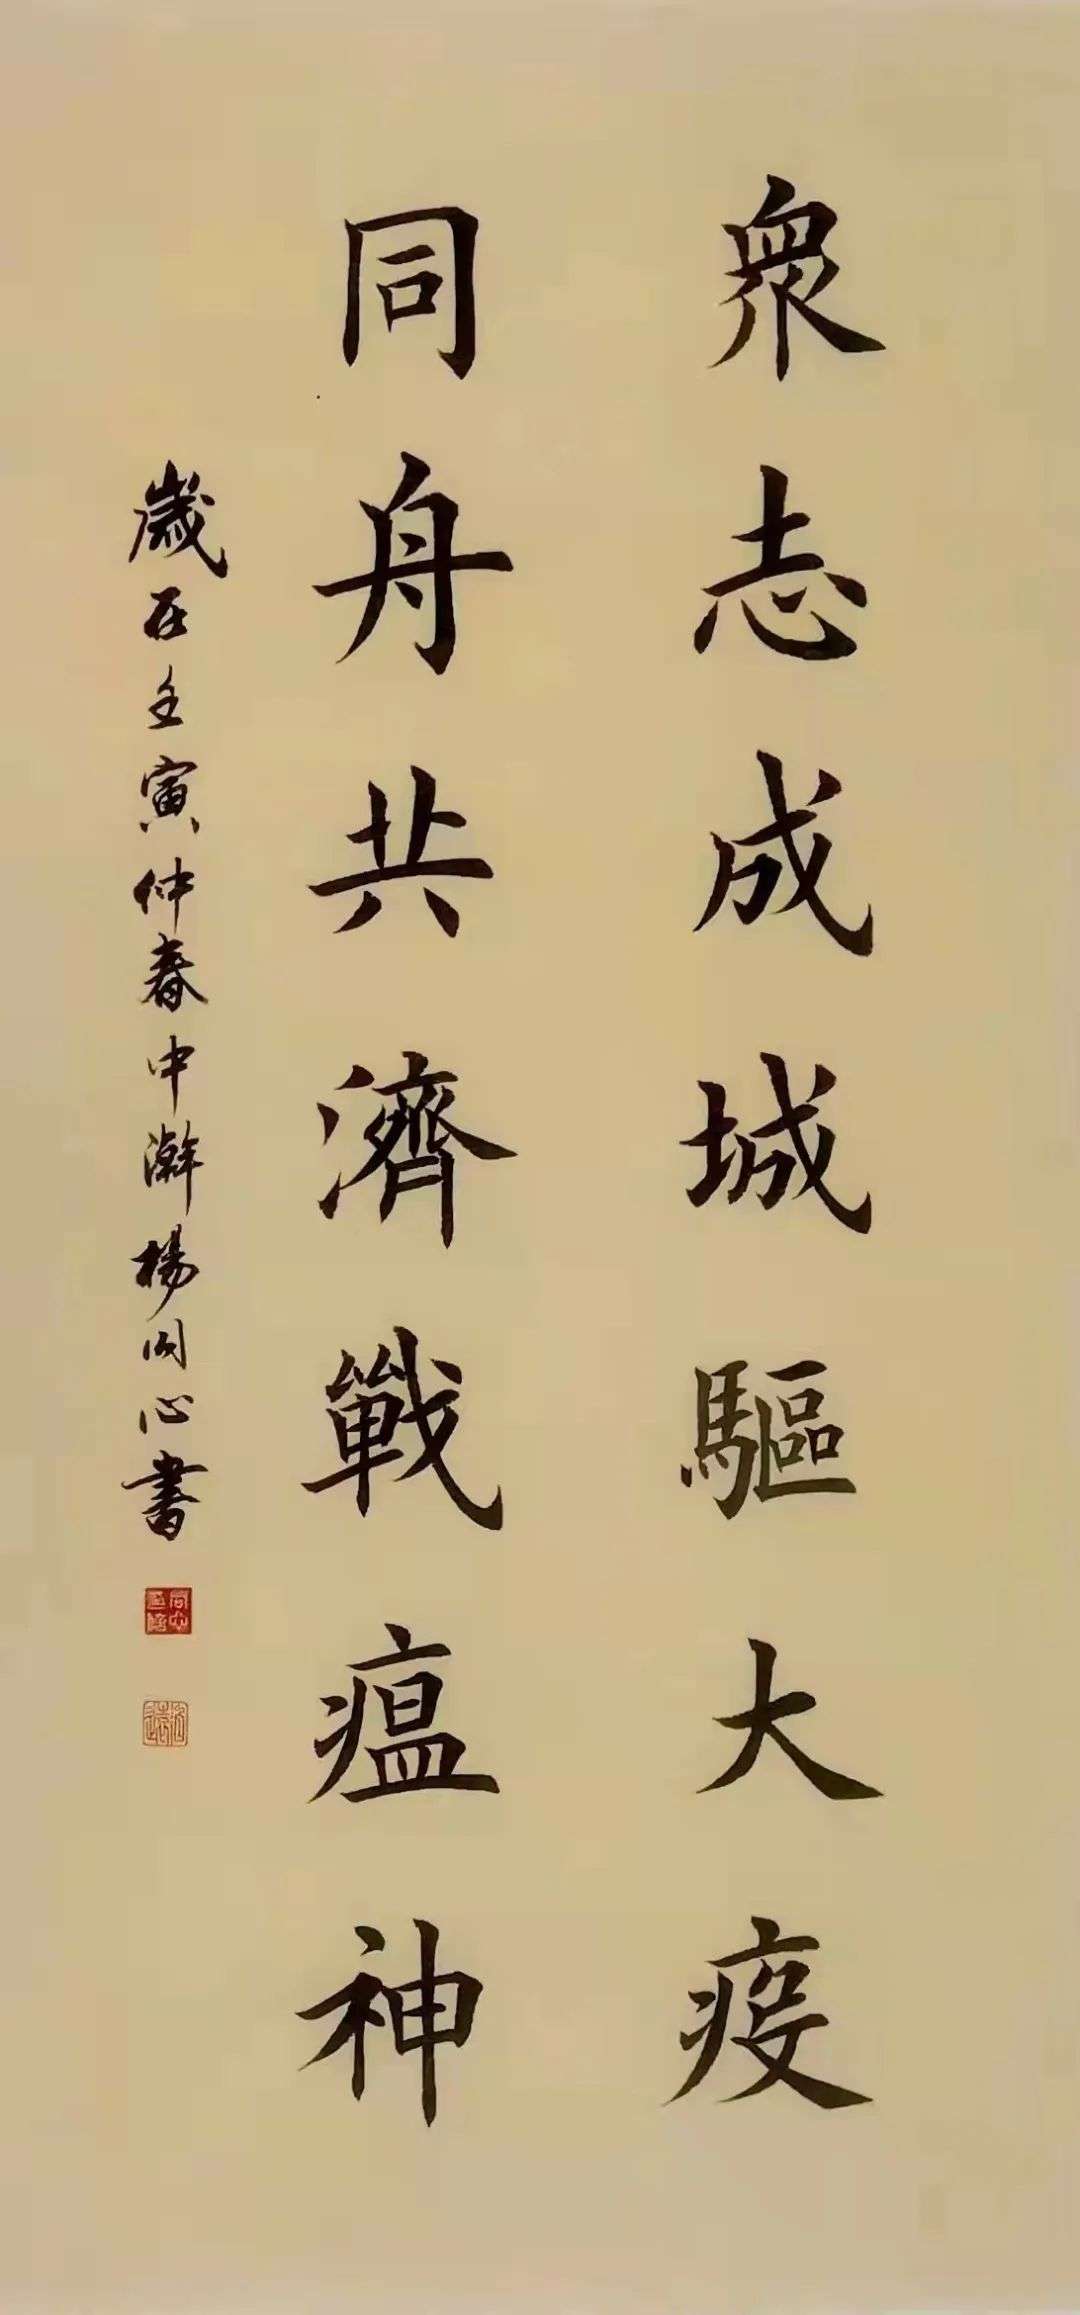 眾志成城驅大疫
同舟共濟戰瘟神
歲在壬寅仲春中澣楊同心書